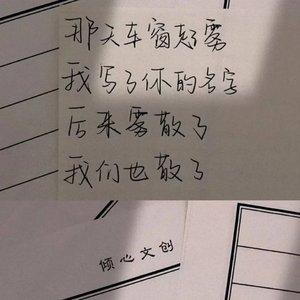 那天车窗起雾
我写了你的名字
后来雾散了
我们也散了
倾心文创